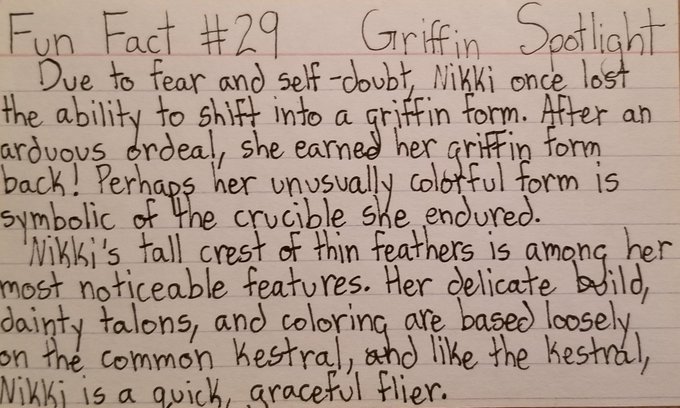 Fun Fact #29 Griffin Spotlight
Due to fear and self-doubt, Nikki once lost
the ability to shift into a griffin form. After an
arduous ordeal, she earned her griffin form
back! Perhaps her unusually colorful form is
symbolic of the crucible she endured.
Nikki's tall crest of thin feathers is among her
most noticeable features. Her delicate build,
dainty talons, and coloring are based loosely
on the common kestral, and like the kestral,
Nikki is a quick, graceful flier.